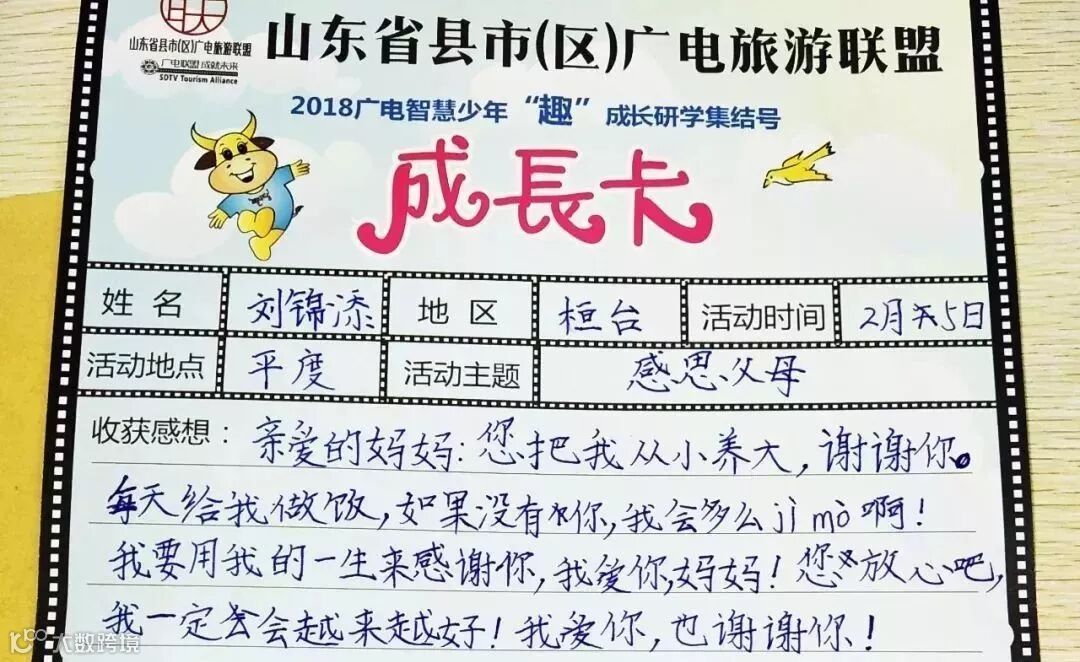 山东省县市(区)广电旅游联盟
广电联盟 成就未来
SDTV Tourism Alliance
山东省县市(区)广电旅游联盟
2018广电智慧少年“趣”成长研学集结号
成長卡
姓名 刘锦添 地区 桓台 活动时间 2月5日
活动地点 平度 活动主题 感恩父母
收获感想：亲爱的妈妈：您把我从小养大，谢谢你。
每天给我做饭，如果没有你，我会多么jì mò啊！
我要用我的一生来感谢你，我爱你，妈妈！您放心吧，
我一定会越来越好！我爱你，也谢谢你！
大数跨境